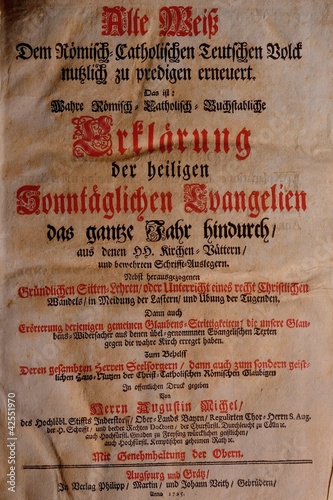 Alte Weiß
Dem Römisch-Catholischen Teutschen Volck
nutzlich zu predigen erneuert.
Das ist:
Wahre Römisch-Catholisch-Buchstabliche
Erklärung
der heiligen
Sonntäglichen Evangelien
das gantze Jahr hindurch/
aus denen HH. Kirchen-Vättern/
und bewehrten Schrifft-Auslegern.
Nebst herausgezogenen
Gründlichen Sitten-Lehren/ oder Unterricht eines recht Christlichen
Wandels/ in Meidung der Lastern/ und Übung der Tugenden.
Dann auch
Erörterung derjenigen gemeinen Glaubens-Strittigkeiten/ die unsere Glau-
bens-Widersacher aus denen übel-genommenen Evangelischen Texten
gegen die wahre Kirch erreget haben.
Zum Behelff
Deren gesambten Herren Seelsorgern/ dann auch zum sondern geist-
lichen Haus-Nutzen der Christ-Catholischen Römischen Glaubigen
In öffentlichen Druck gegeben
Von
Herrn Augustin Michel/
des Hochlöbl. Stiffts Inderstorff/ Ober-Lands Bayrn/ Regulirten Chor-Herrn S. Aug.
der H. Schrifft/ und beeder Rechten Doctorn/ der Churfürstl. Durchleucht zu Cölln etc.
auch Hochfürstl. Gnaden zu Freysing würcklichen geistlichen/
auch Hochfürstl. Kemptischen geheimen Rath etc.
Mit Genehmhaltung der Obern.
Augspurg und Grätz/
In Verlag Philipp/ Martin/ und Johann Veith/ Gebrüdern/
Anno
Adobe Stock
#42551970